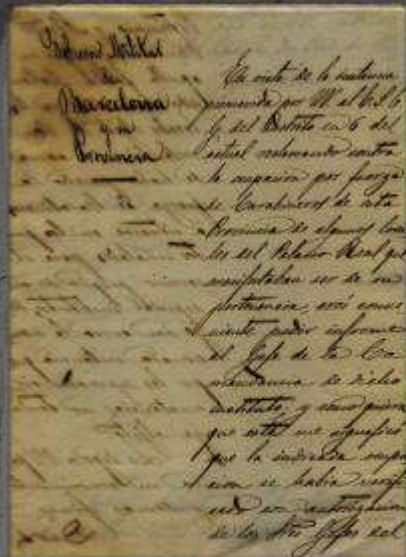 Gobierno Militar
de
Barcelona
y su
Provincia
En vista de la instancia
promovida por VV. al E. S. C.
G. del Distrito en 6 del
actual reclamando contra
la ocupación por fuerza
de Carabineros de esta
Provincia de algunos loca
les del Palacio Real que
manifestaban ser de su
pertenencia, creí conve
niente pedir informe
al Jefe de la Co
mandancia de dicho
instituto, y como quiera
que este me significó
que la indicada ocupa
ción se había verifi
cado con autorización
de los Jefes del